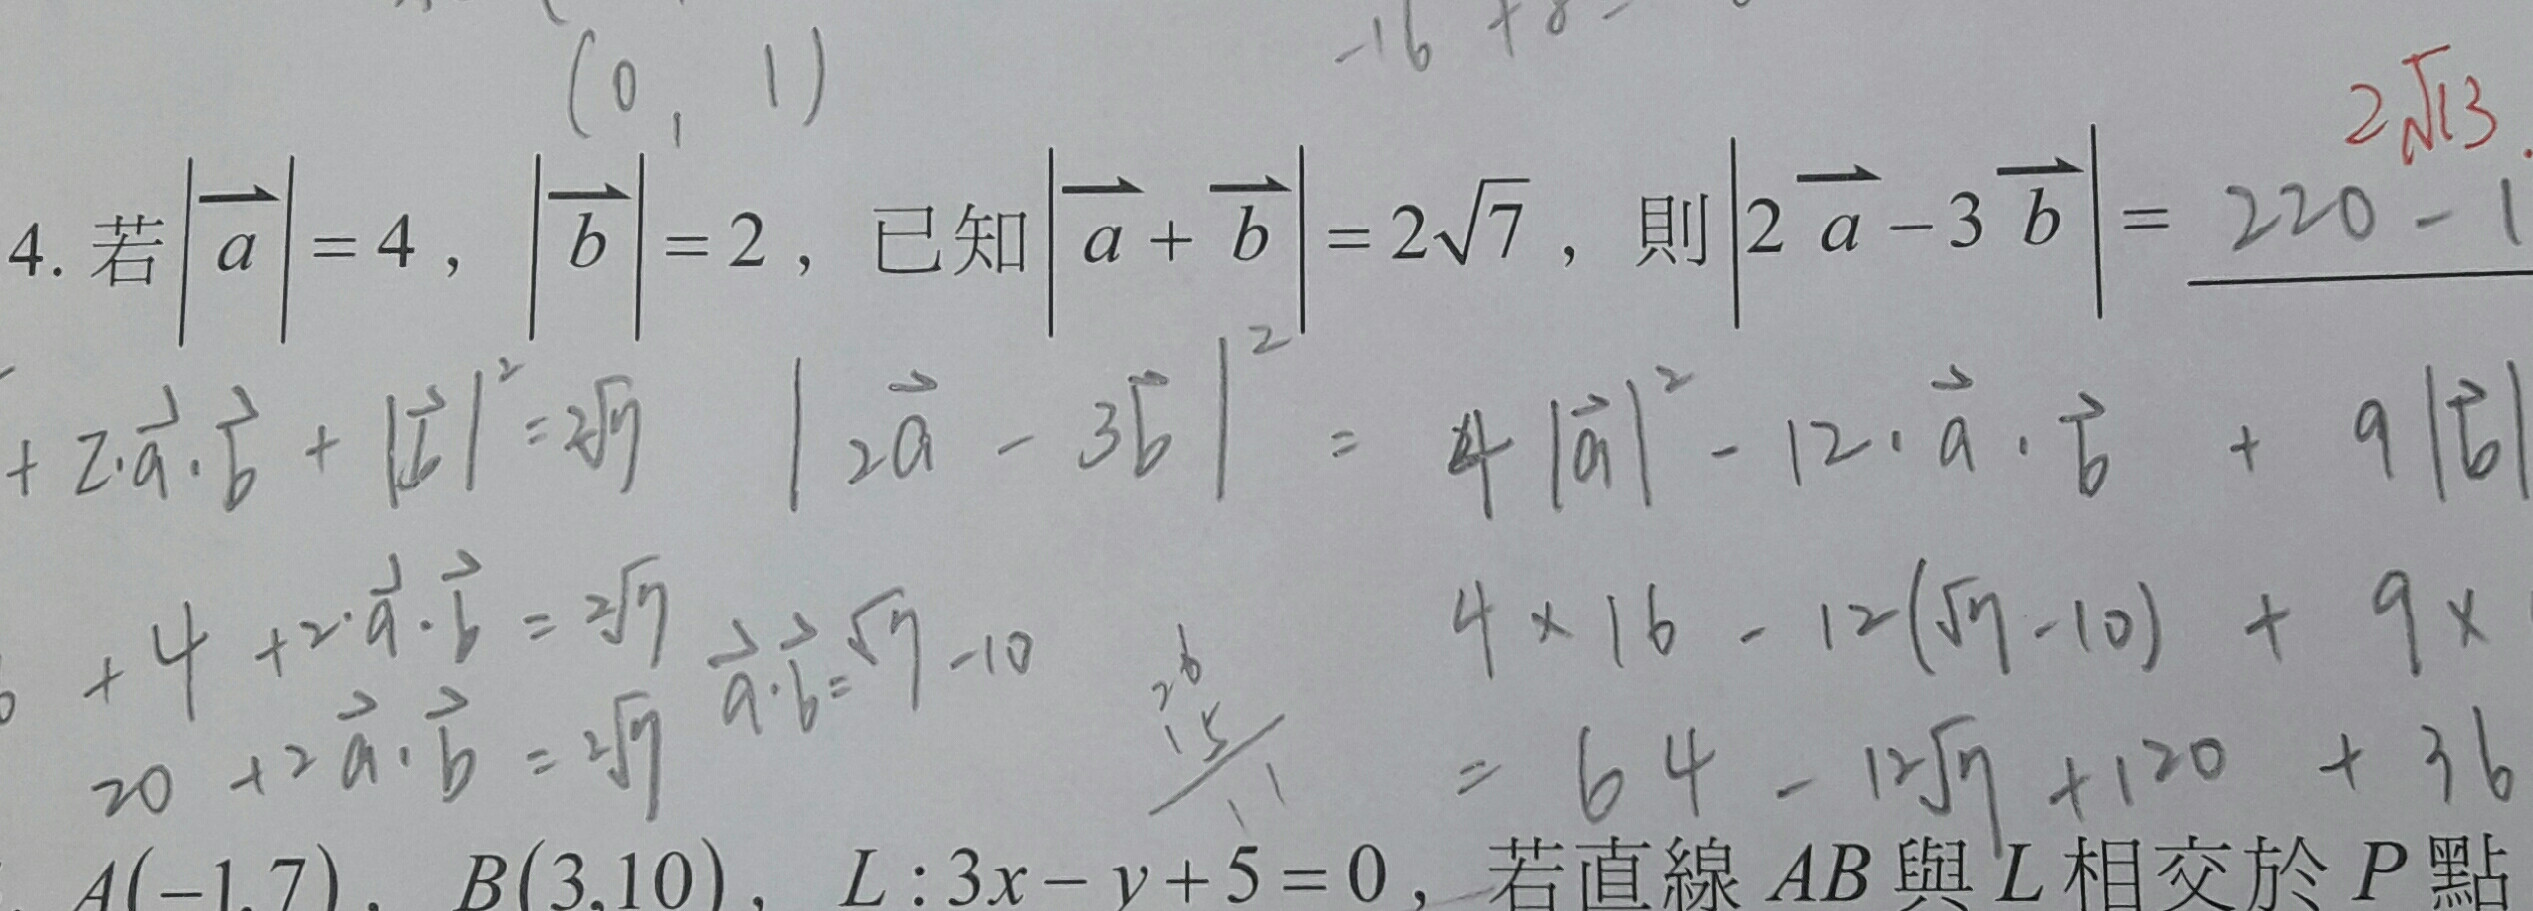 (0, 1)
-16 + 8
2√13.
4. 若|a⃗|=4，|b⃗|=2，已知|a⃗+b⃗|=2√7，則|2a⃗-3b⃗|= 220-1
+ 2·a⃗·b⃗ + |b⃗|²=2√7 |2a⃗ - 3b⃗|² = 4|a⃗|² - 12·a⃗·b⃗ + 9|b⃗|
+4 +2·a⃗·b⃗ = 2√7 a⃗·b⃗=√7-10 4×16 - 12(√7-10) + 9×
26
15
11
20 +2a⃗·b⃗ = 2√7 = 64 - 12√7 +120 + 36
A(-1,7)，B(3,10)，L:3x-y+5=0，若直線AB與L相交於P點